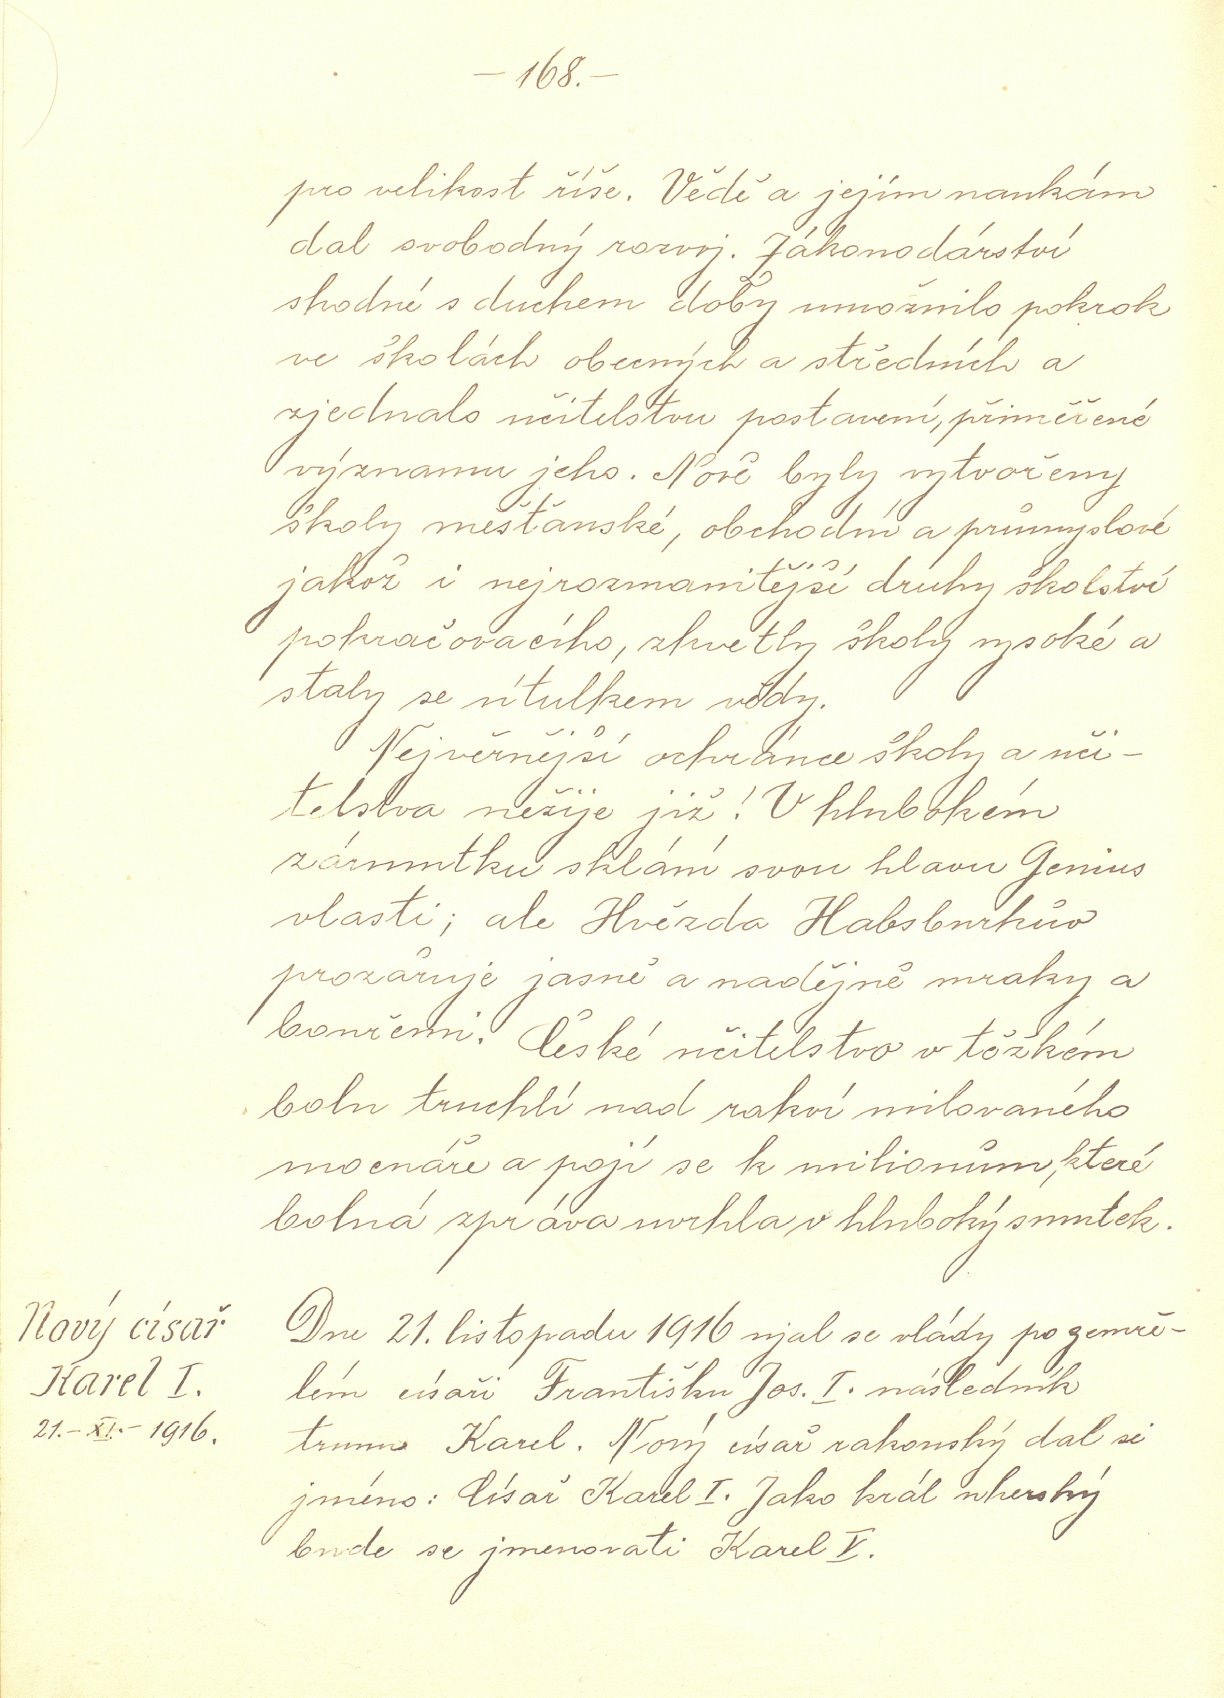 – 168. –
pro velikost říše. Vědě a jejím naukám
dal svobodný rozvoj. Zákonodárství
shodné s duchem doby umožnilo pokrok
ve školách obecných a středních a
zjednalo učitelstvu postavení, přiměřené
významu jeho. Nově byly vytvořeny
školy měšťanské, obchodní a průmyslové
jakož i nejrozmanitější druhy školství
pokračovacího, zkvetly školy vysoké a
staly se útulkem vědy.
Nejvěrnější ochránce školy a uči-
telstva nežije již! V hlubokém
zármutku sklání svou hlavu Genius
vlasti; ale Hvězda Habsburkův
prozařuje jasně a nadějně mraky a
bouřemi. České učitelstvo v těžkém
bolu truchlí nad rakví milovaného
mocnáře a pojí se k milionům, které
bolná zpráva uvrhla v hluboký smutek.
Nový císař
Karel I.
21.– XI.– 1916.
Dne 21. listopadu 1916 ujal se vlády po zemře-
lém císaři Františku Jos. I. následník
trunu Karel. Nový císař rakouský dal si
jméno: Císař Karel I. Jako král uherský
bude se jmenovati Karel V.